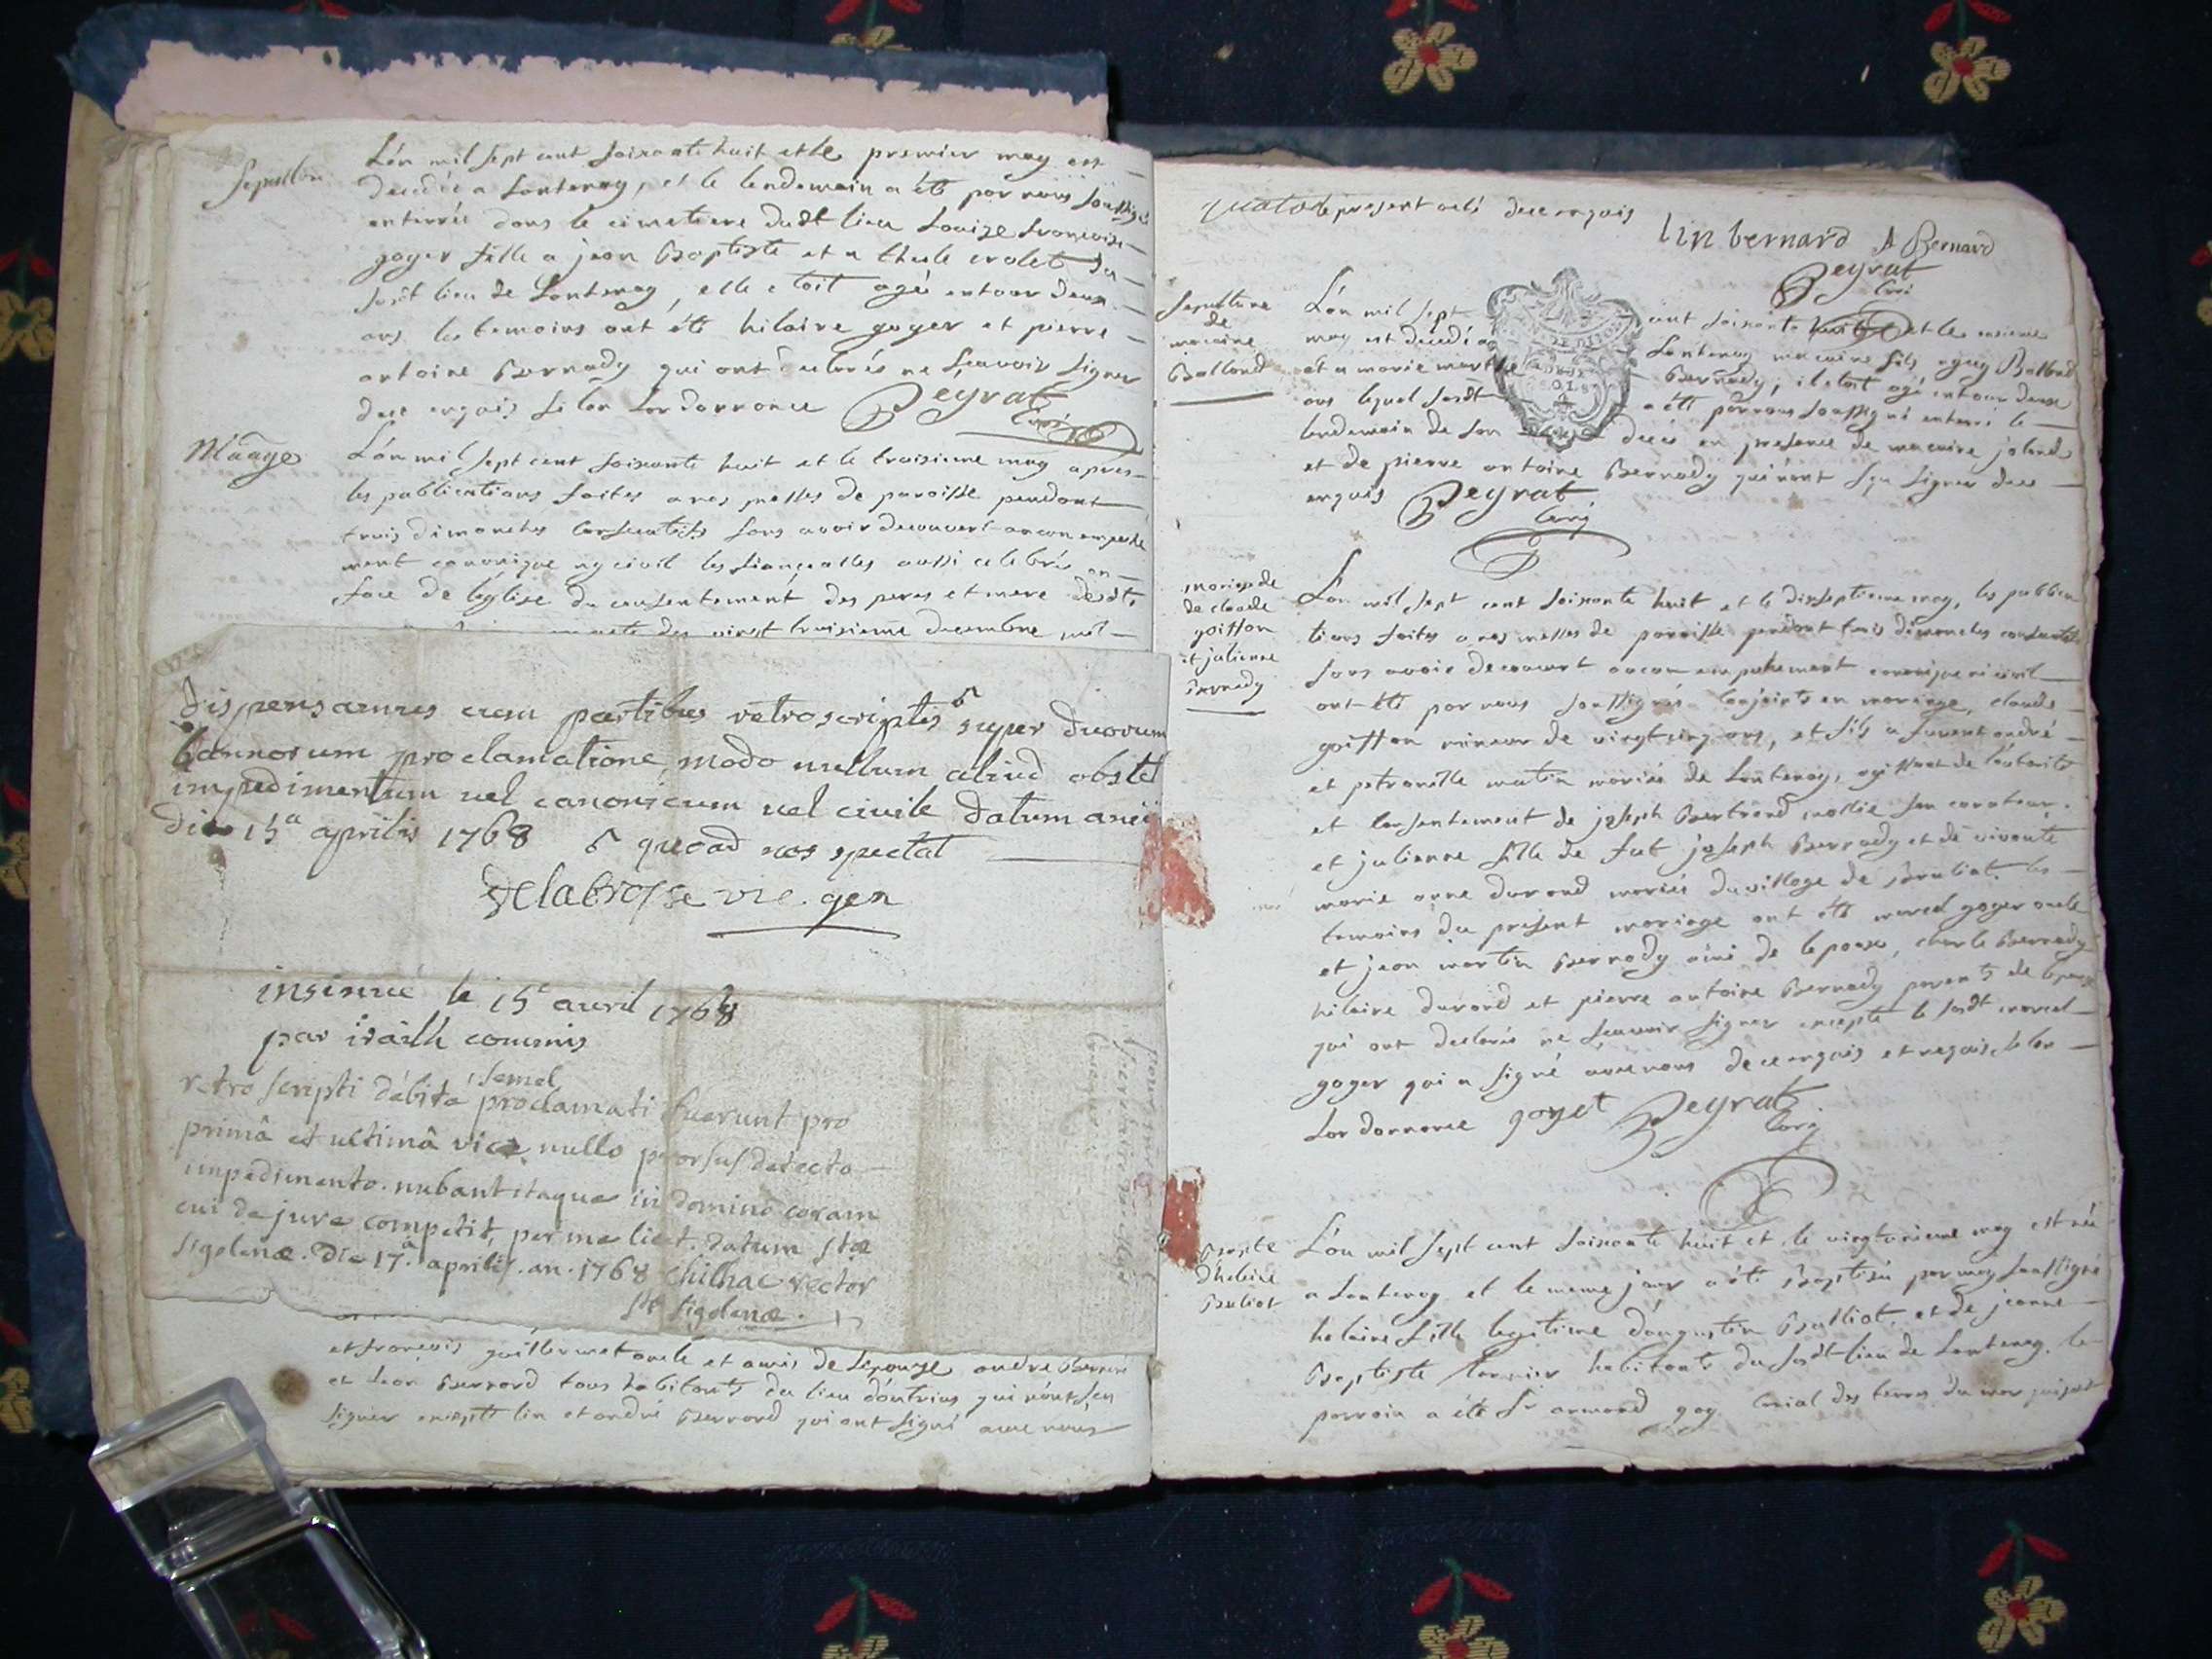 Sepulture
L'an mil sept cent soixante huit et le premier may est
decedée a Lantenay, et le lendemain a été par nous soussigné
enterrée dans le cimetiere dudt lieu Louise francoise
goyer fille a jean Baptiste et a
susdt lieu de Lantenay, elle etoit agée entour deux
ans les temoins ont été hilaire goyer et pierre
antoine Bernady qui ont declarés ne sçavoir signer
dece enquis selon Lordonnance Peyrat
Curé
Mariage
L'an mil sept cent soixante huit et le troisieme may apres
les publications faites a nos messes de paroisse pendant
trois dimanches consecutifs sans avoir decouvert aucun empeche
ment canonique ny civil les fiançailles aussi celebrés en
face de léglise du consentement des peres et mere desdts
vingt troisieme decembre mil
dispensamus cum partibus retroscriptis super duorum
bannorum proclamatione modo nullum aliud obstet
impedimentum vel canonicum vel civile datum anicii
die 15a aprilis 1768 quoad nos spectat
Delabrosse vic. gen
insinué le 15e avril 1768
par irailh commis
semel
retro scripti débité proclamati fuerunt pro
primâ et ultimâ vice nullo prorsus detecto
impedimento. nubant itaque in domino coram
cui de jure competit, per me licet. datum stæ
sigolenæ. die 17.a aprilis. an. 1768 Chilhac rector
stæ sigolenæ.
et françois guillermet oncle et amis de lepouze andre Bernard
et Bernard tous habitants du lieu qui n'ont sçu
signer excepté lin et andré Bernard qui ont signé avec nous
le present acte dece enquis
lin bernard A Bernard
Peyrat
Curé
Sepulture
de
macaire
Balland
L'an mil sept cent soixante huit et le onzieme
may est decedé a Lantenay macaire fils a Balland
et a marie marthe Bernady, il etoit agé entour deux
ans lequel susdt a été par nous soussigné enterré le
lendemain de son decés en presence de macaire jaland
et de pierre antoine Bernady qui n'ont sçu signer dece
enquis Peyrat
Curé
mariage de
de claude
goiffon
et julienne
Bernady
L'an mil sept cent soixante huit et le dixseptieme may, les publica
tions faites a nos messes de paroisse pendant trois dimanches consecutifs
sans avoir decouvert aucun empechement canonique ni civil
ont été par nous soussignés conjoints en mariage, claude
goiffon mineur de vingt cinq ans, et fils a furent andré
et petronille mariés de Lantenay, agissant de l'autorité
et consentement de joseph Bertrand son curateur.
et julienne fille de fut joseph Bernady et de vivante
marie anne durand mariés du village de les
temoins du present mariage ont été marcel goyer oncle
et jean martin Bernady amis de lepoux, charle Bernady
hilaire durand et pierre antoine Bernady parents de lepouze
qui ont declarés ne sçavoir signer excepté le susdt marcel
goyer qui a signé avec nous dece enquis et requis selon
Lordonnance goyet Peyrat
Curé
Bapte
d'helaine
Balliot
L'an mil sept cent soixante huit et le vingtonzieme may est née
a Lantenay et le meme jour a été Baptisée par moy soussigné
helaine fille legitime d'augustin Balliot, et de jeanne
Baptiste habitants du susdt lieu de Lantenay. le
parrain a été Sr armand goy des terres du marquisat